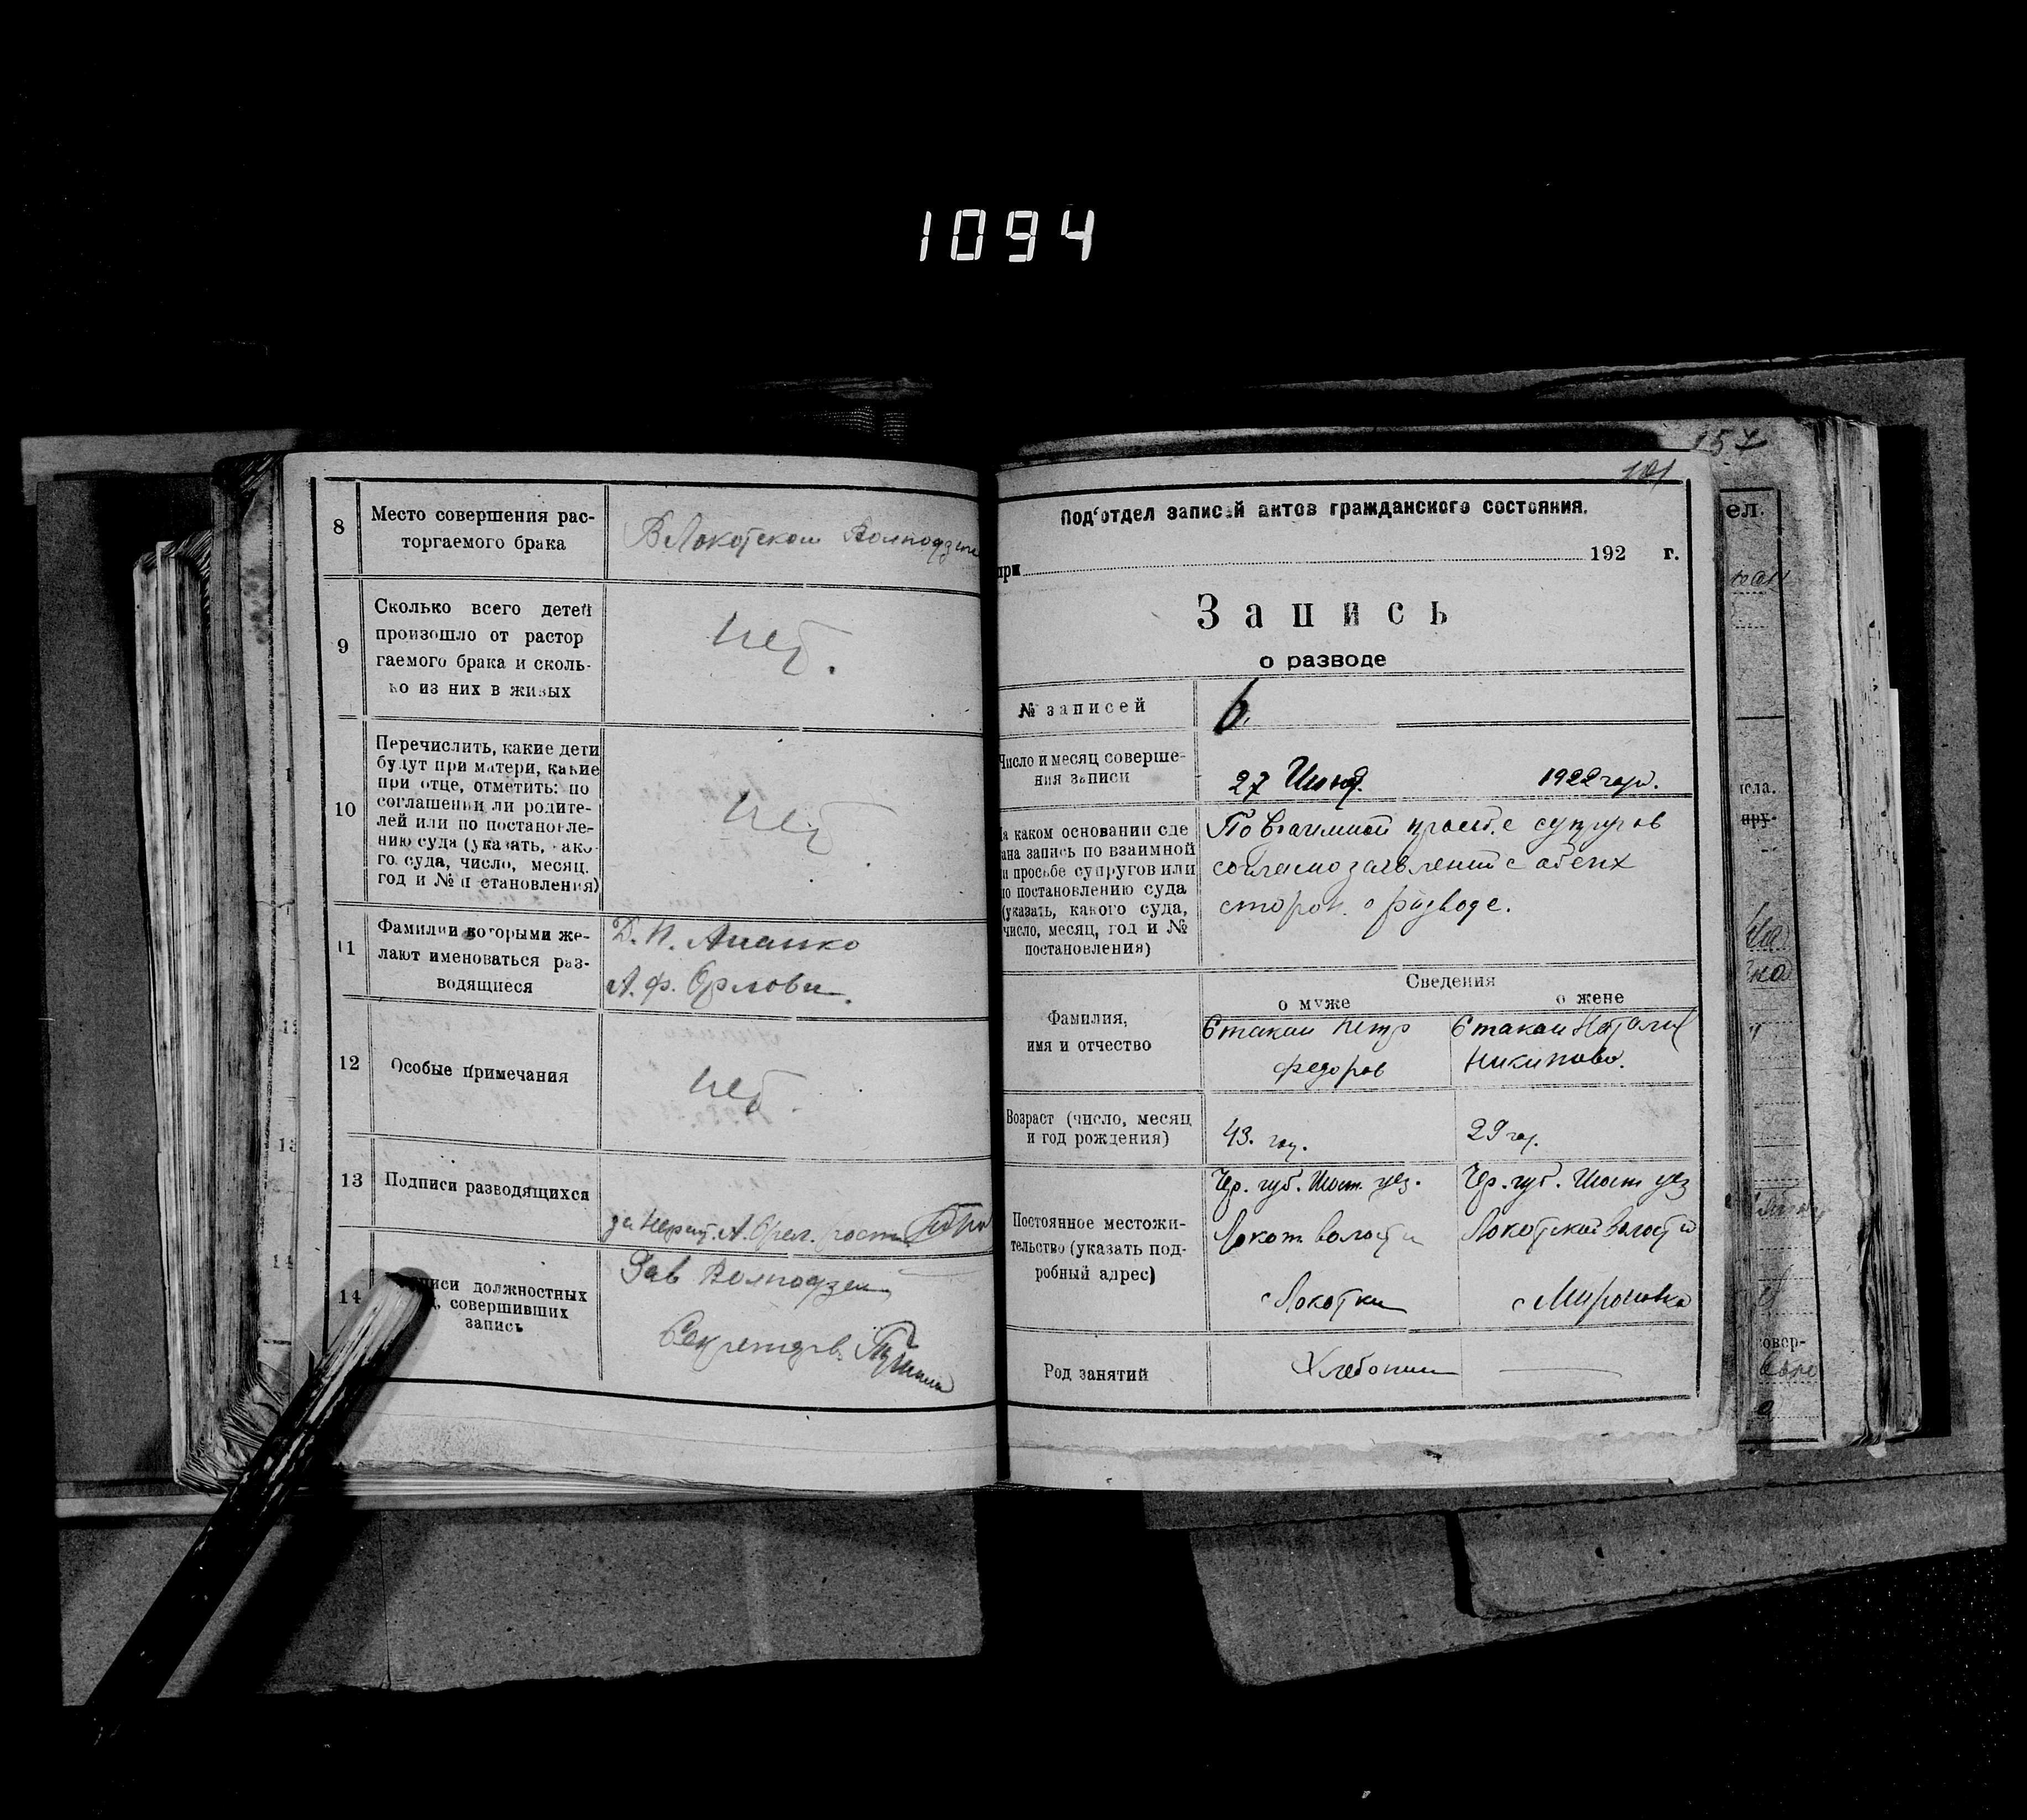 1094
8
Место совершения рас-
торгаемого брака
В Локотском
9
Сколько всего детей
произошло от растор
гаемого брака и сколь-
ко из них в живых
нет.
10
Перечислить, какие дети
будут при матери, какие
при отце, отметить: по
соглашении ли родите-
лей или по постановле-
нию суда (указать, како-
го суда, число, месяц.
год и № п становления)
нет
11
Фамилии которыми же-
лают именоваться раз-
водящиеся
Д. И.
А. Ф. Орлова.
12
Особые примечания
нет.
13
Подписи разводящихся
за негр. А. Орл.
14
иси должностных
, совершивших
запись
Зав
Секретарь
157
101
Под'отдел записей актов гражданского состояния.
при 192 г.
Запись
о разводе
№ записей
6.
Число и месяц соверше-
ния записи
27 Июня. 1922 года.
а каком основании сде
ана запись по взаимной
и просьбе супругов или
по постановлению суда
(указать, какого суда,
число, месяц, год и №
постановления)
По взаимной просьбе супругов
согласно заявлений с обеих
сторон о разводе.
Сведения
о муже
о жене
Фамилия,
имя и отчество
Стакан Петр
Федоров
Стакан Наталия
Никипова.
Возраст (число, месяц
и год рождения)
43. год.
29 год.
Постоянное местожи-
тельство (указать под-
робный адрес)
Чер. губ. Шост. уез.
Локот. волости
с Локотки
Чер. губ. Шост уез
Локотской волости
с Мироновка
Род занятий
Хлебопаш
ел.
исла.
пру-
овер-